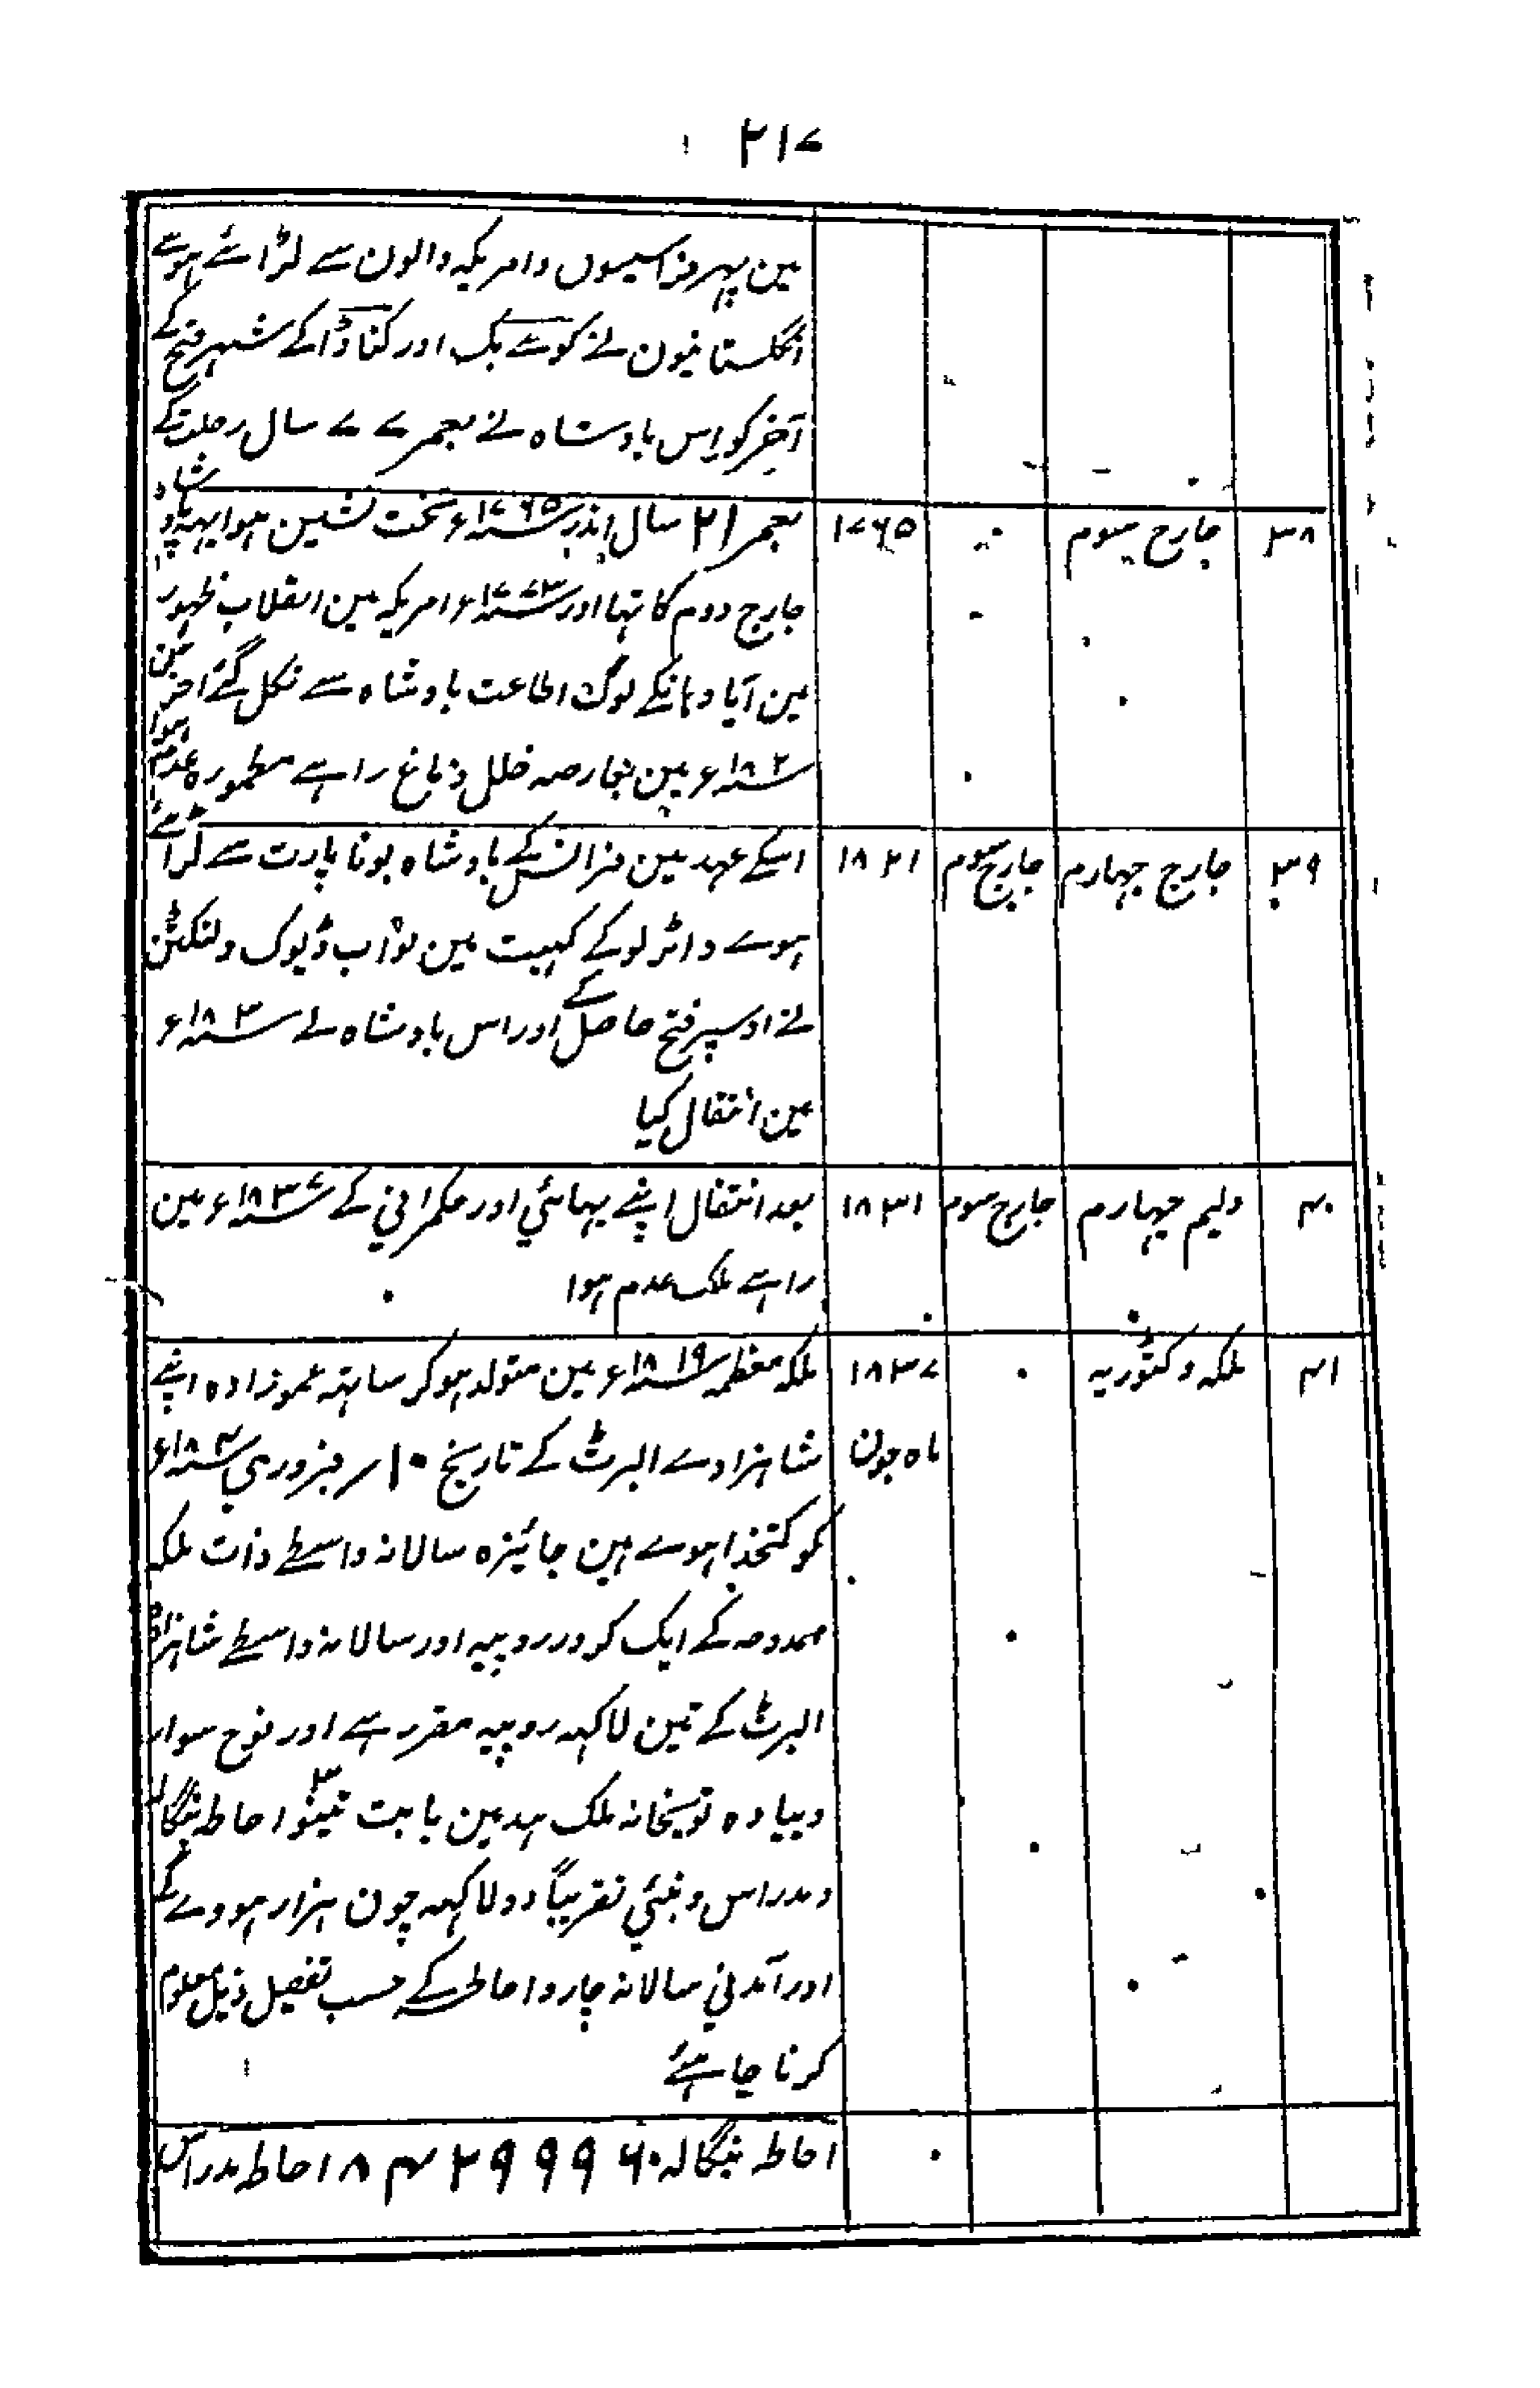 ۲۱۷
مین پہر فرانسیسیون و امریکہ والون سے لڑائے ہوئے
انگلستانیون نے کوئے بک اور کناڈا کے شہر فتح کے
آخر کو اِس بادشاہ نے بعمر ۷۷ سال رحلت کے
۳۸ جارج سوم ۰ ۱۷۶۵ بعمر ۲۱ سال اندر سنہ ۱۷۶۵ء تخت نشین ہوا یہہ بادشاہ
جارج دوم کا تہا اور امریکہ مین انقلاب ظہور
مین آیا وہانکے لوگ اطاعت بادشاہ سے نکل گئے آخر مین
سنہ ۱۸۲ء مین بعارضہ خلل دماغ راہے مطمورہ عدم ہوا
۳۹ جارج چہارم جارج سوم ۱۸۲۱ اسکے عہد مین فرانس کے بادشاہ بونا پارت سے لڑائے
ہوے واٹرلو کے کہیت مین نوّاب ڈیوک ولنکٹن
نے اوسپر فتح حاصل کے اور اس بادشاہ نے سنہ ۱۸۳ء
مین انتقال کیا
۴۰ ولیم چہارم جارج سوم ۱۸۳۱ بعد انتقال اپنے بہائي اور حکمراني کے سنہ ۱۸۳۷ء مین
راہے ملک عدم ہوا
۴۱ ملکہ وکٹوریہ ۰ ۱۸۳۷ ملکہ معظمہ سنہ ۱۸۱۹ء مین متولد ہوکر ساتہہ عموزادہ اپنے
ماہ جون شاہزادے البرٹ کے تاریخ ۱۰؍ فبروري سنہ ۱۸۴ء
کو کتخدا ہوے ہین جائیزہ سالانہ واسطے ذات ملکہ
ممدوحہ کے ایک کرور روپیہ اور سالانہ واسطے شاہزادہ
البرٹ کے تین لاکہہ روپیہ مقرر ہے اور فوج سوار
و پیادہ توپخانہ ملک ہند مین بابت تینو ۳ احاطہ بنگالہ
و مدراس و بمبئي تقریباً دو لاکہہ چون ہزار ہووے گے
اور آمدني سالانہ چارو احاطے کے حسب تفصیل ذیل معلوم
کرنا چاہئے
۰ احاطہ بنگالہ ۸۴۲۹۹۹۶۰ احاطہ مدراس